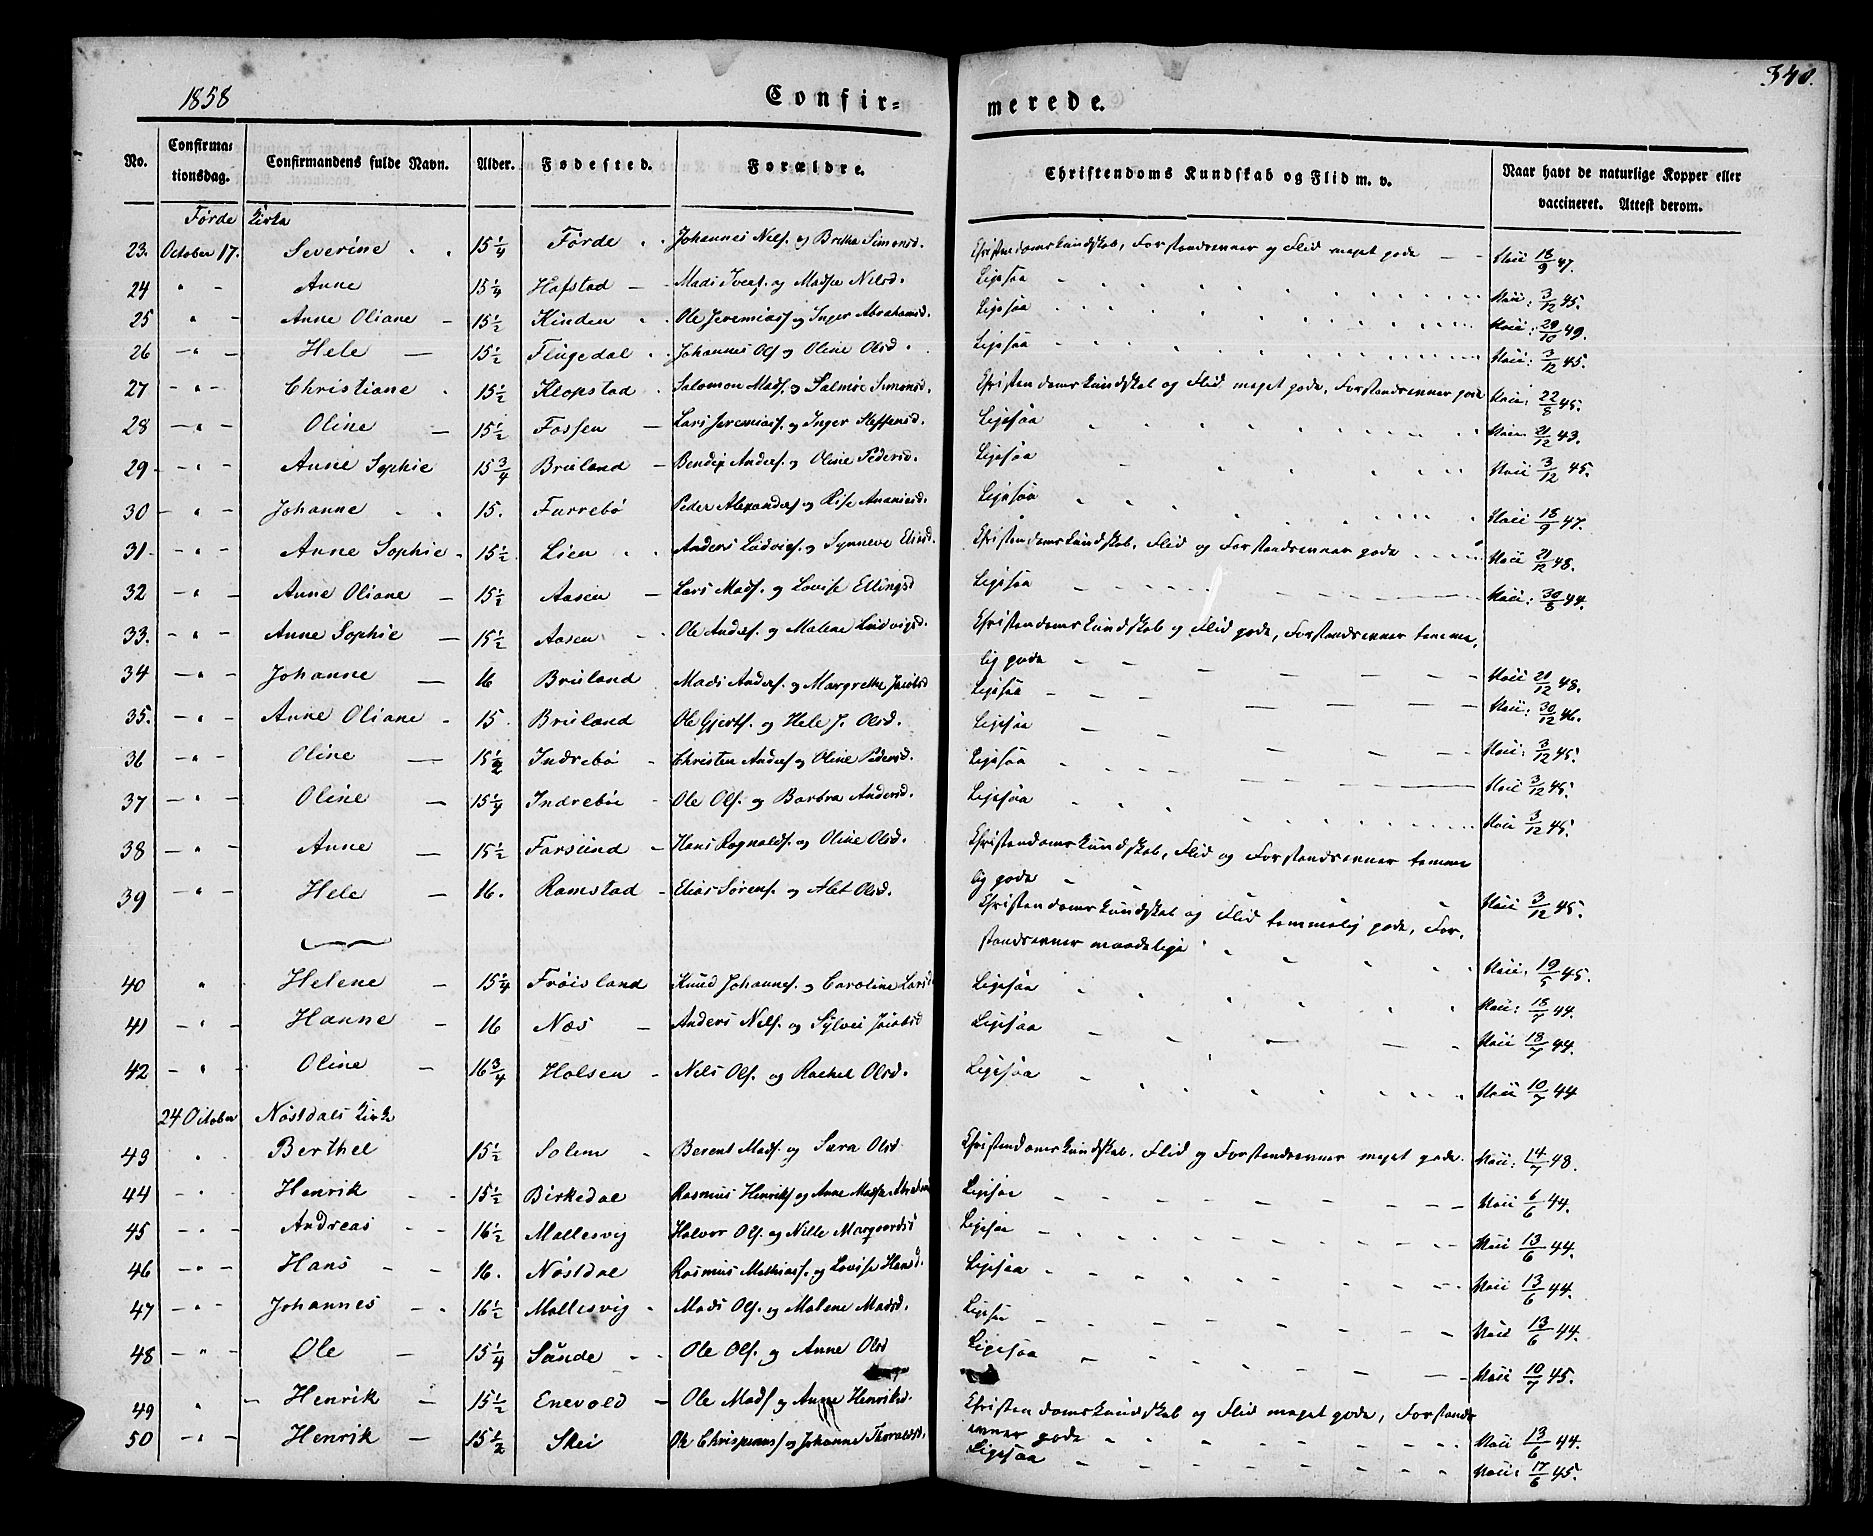 1858
340.
Confir-
merede.
No.
Confirma-
tionsdag.
Confirmandens fulde Navn.
Alder.
Fødested.
Forældre.
Christendoms Kundskab og Flid m. v.
Naar havt de naturlige Kopper eller
vaccineret. Attest derom.
Førde Kirke
23. October 17. Severine 15 1/4 Førde Johannes Nels. og Brethe Simonsd. Christendomskundskab, Forstandsevner og Flid meget gode Vacc 18/9 47.
24 " - Anne 15 1/4 Hafstad - Mads Ivers. og Madse Nilsd. Ligesaa Vacc: 3/12 45.
25 " - Anne Oliane - 15 1/2 Kinden Ole Jeremiass og Inger Abrahamsd. Ligesaa Vacc: 29/10 49.
26 - " - Hele - 15 1/2 Flugedal Johannes Ols og Oline Olsd. Ligesaa Vacc: 3/12 45.
27 - " - Christiane 15 1/2 Klopstad Salomon Mads. og Salmöe Simonsd. Christendomskundskab og Flid meget gode, Forstandsevner gode Vacc: 22/8 45.
28 - " - Oline - 15 1/2 Fossen - Lars Jeremiass. og Inger Steffensd. Ligesaa Vacc 21/12 43.
29 - " - Anne Sophie 15 3/4 Bruland - Bendix Anders. og Oline Pedersd. Ligesaa Vacc 3/12 45.
30 - " - Johanne 15. Furrebø Peder Alexanders og Lise Ananiasd. Ligesaa Vacc 18/9 47.
31 - " - Anne Sophie 15 1/2 Lien Anders Ludvigs. og Synneve Eliasd. Christendomskundskab, Flid og Forstandsevner gode Vacc 21/12 48.
32 - " - Anne Oliane - 15 1/2 Aasen - Lars Mads. og Lovise Ellingsd Ligesaa Vacc: 30/8 44.
33. - " - Anne Sophie - 15 1/2 Aasen - Ole Anders. og Malene Ludvigsd. Christendomskundskab og Flid gode, Forstandsevner temme-
lig gode Vacc 21/12 48.
34 - " - Johanne - 16 Bruland Mads Anders. og Margrethe Jacobsd Ligesaa Vacc: 30/12 46.
35. - " - Anne Oliane - 15. Bruland Ole Gjerts. og Hele J. Olsd. Ligesaa Vacc: 3/12 45.
36 - " - Oline - 15 1/2 Indrebø - Christen Anders og Oline Pedersd. Ligesaa Vacc 3/12 45.
37 - " - Oline - 15 1/4 Indrebøe - Ole Ols. og Barbra Andersd. Ligesaa Vacc 3/12 45.
38 - " - Anne - 15 1/2 Farsund - Hans Rognalds. og Oline Olsd. Christendomskundskab, Flid og Forstandsevner temme
lig gode Vacc 3/12 45.
39 - " - Hele - 16. Ramstad - Elias Sørens. og Alet Olsd. Christendomskundskab og Flid temmelig gode, For-
standsevner maadelige Vacc. 19/5 45.
40 " Helene - 15 1/4 Frøisland Knud Johannes. og Caroline Larsd Ligesaa Vacc: 18/7 44.
41 - " - Hanne - 16 Næs - Anders Nels. og Sylvei Jacobsd Ligesaa Vacc 18/7 44.
42 - " - Oline - 16 3/4 Holsen - Nils Ols. og Rachel Olsd. Ligesaa Vacc 10/7 44
24 October Nøstdals Kirke
43 " Berthel 15 1/2 Solem - Berent Mads. og Sara Olsd Christendomskundskab, Flid og Forstandsevner meget gode. Vacc: 14/7 48.
44 - " - Henrik - 15 1/2 Birkedal Rasmus Henriks og Anne Madse Ligesaa Vacc 6/6 44.
45 - " - Andreas - 16 1/2 Mallesvig Halvor Ols. og Nille Ligesaa Vacc 13/6 44.
46 - " - Hans - 16. Nøstdal Rasmus Mathiass. og Lovise Hansd. Ligesaa Vacc 13/6 44.
47 - " - Johannes - 16 1/2 Mallesvig Mads Ols. og Malene Madsd. Ligesaa Vacc 13/6 44.
48 - " - Ole - 15 1/4 Sande - Ole Ols. og Anne Olsd Ligesaa Vacc 10/7 45.
49 " - Henrik - 15 1/2 Enevold - Ole Mads og Anne Henriksd. Christendomskundskab og Flid meget gode, Forstands
evner gode Vacc 13/6 44.
50 - " - Henrik - 15 1/2 Skei Ole og Johanne Thoraldsd. Ligesaa Vacc: 17/6 45.